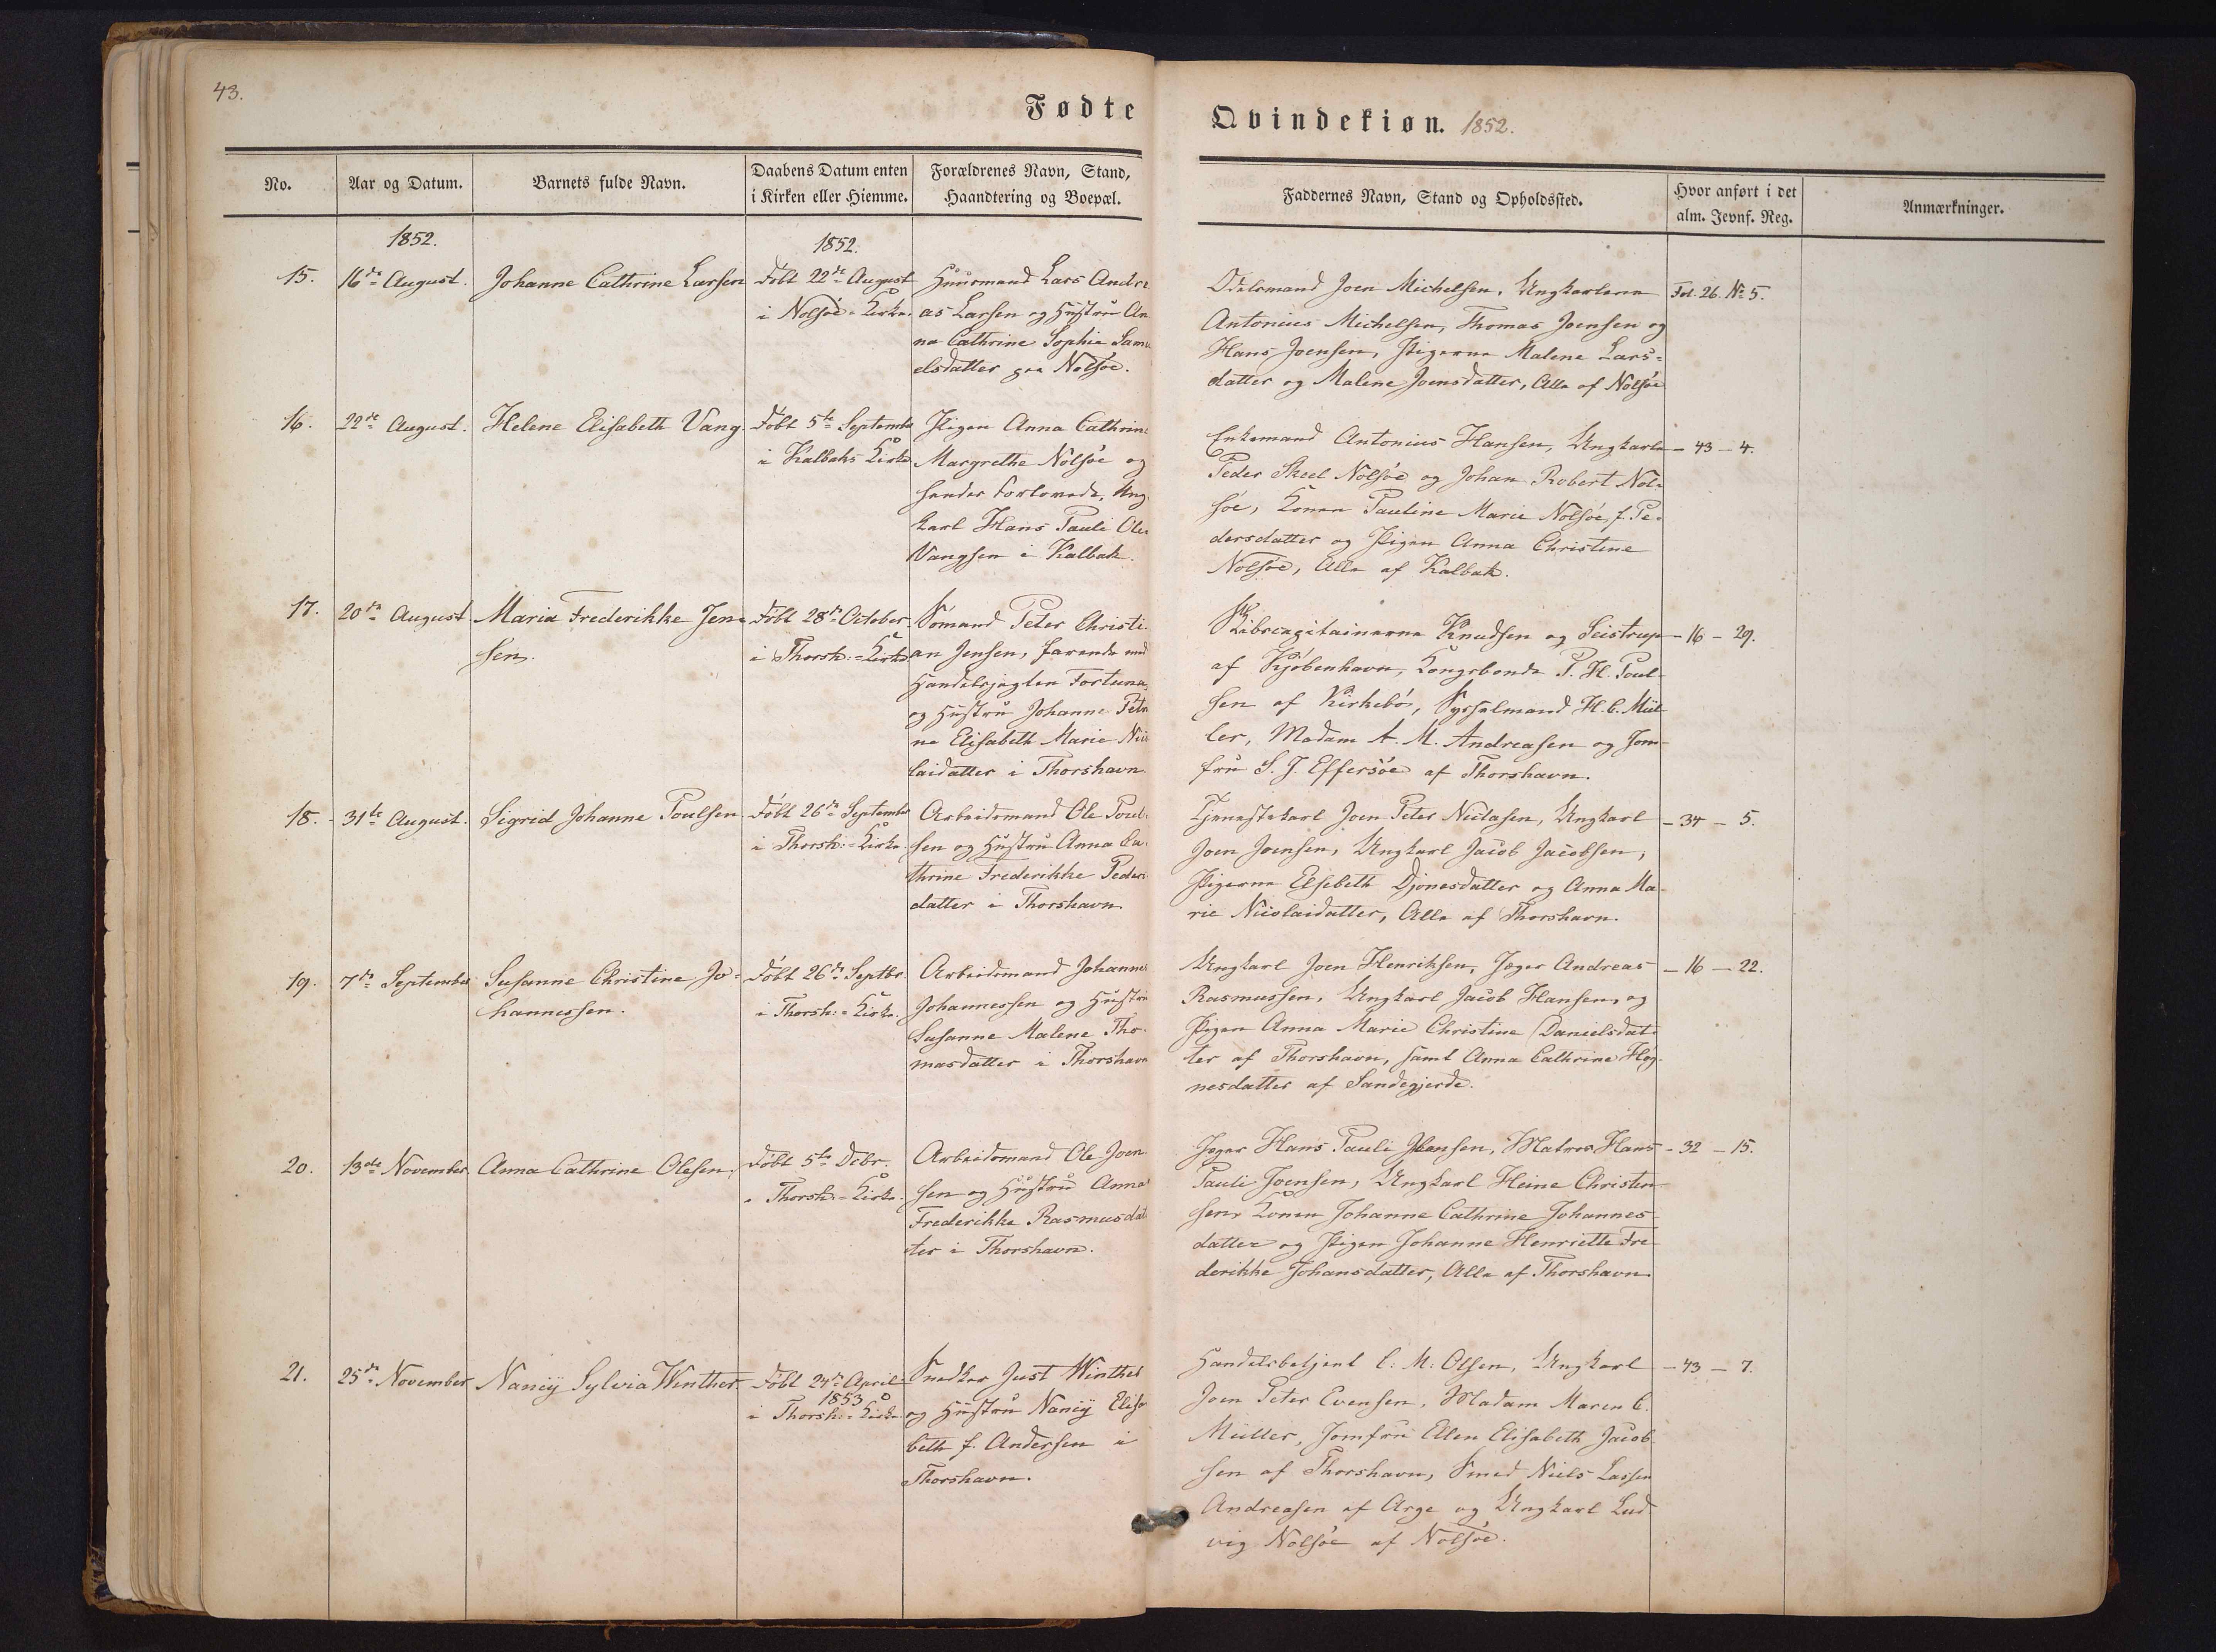 43.
Fødte
Qvindekiøn. 1852.
No.
Aar og Datum.
Barnets fulde Navn.
Daabens Datum enten
i Kirken eller Hiemme.
Forældrenes Navn, Stand,
Haandtering og Boepæl.
Faddernes Navn, Stand og Opholdssted.
Hvor anført i det
alm. Jevnf. Reg.
Anmærkninger.
1852.
1852.
15.
16de August.
Johanne Cathrine Larsen
Døbt 22de August
i Nolsøe Kirke.
Huusmand Lars Andre
as Larsen og Hustru An
na Cathrine Sophie Samu
elsdatter paa Nolsøe.
Odelsmand Joen Michelsen, Ungkarlene
Antonius Michelsen, Thomas Joensen og
Hans Joensen, Pigerne Malene Lars=
datter og Malene Joensdatter, Alle af Nolsøe
Fol. 26. No 5.
16.
22de August.
Helene Elisabeth Vang.
Døbt 5te Septembr
i Kalbaks Kirke
Pigen Anna Cathrine
Margrethe Nolsøe og
hendes Forlovede, Ung
karl Hans Pauli Ole
Vangsen i Kalbak.
Enkemand Antonius Hansen, Ungkarle
Peder Skeel Nolsøe og Johan Robert Nol=
søe, Konen Pauline Marie Nolsøe, f. Pe=
dersdatter og Pigen Anna Christine
Nolsøe, Alle af Kalbak.
- 43 - 4.
17.
20de August
Maria Frederikke Jen=
sen.
Døbt 28de October
i Thorsh:=Kirke
Sømand Peter Christi=
an Jensen, farende med
Handelsjagten Fortuna,
og Hustru Johanne Petri
ne Elisabeth Marie Nic
laidatter i Thorshavn.
Skibscapitainerne Knudsen og Seistrup
af Kjøbenhavn, Kongsbonde P. H. Poul=
sen af Kirkebø, Sysselmand H. C. Mül
ler, Madam A. M. Andreasen og Jom=
fru S. J. Effersøe af Thorshavn.
- 16 - 29.
18.
31te August.
Sigrid Johanne Poulsen.
Døbt 26de Septembr
i Thorsh:=Kirke.
Arbeidsmand Ole Poul=
sen og Hustru Anna Ca=
thrine Frederikke Peders
datter i Thorshavn.
Tjenestekarl Joen Peter Niclasen, Ungkarl
Joen Joensen, Ungkarl Jacob Jacobsen,
Pigerne Elsebeth Djonesdatter og Anna Ma=
rie Nicolaidatter, Alle af Thorshavn.
- 34 - 5.
19.
7de September
Susanne Christine Jo=
hannessen.
Døbt 26de Septbr.
i Thorsh:=Kirke.
Arbeidsmand Johannes
Johannessen og Hustru
Susanne Malene Tho=
masdatter i Thorshavn
Ungkarl Joen Henriksen, Jæger Andreas
Rasmussen, Ungkarl Jacob Hansen, og
Pigen Anna Marie Christine Danielsdat=
ter af Thorshavn, samt Anna Cathrine Høg=
nesdatter af Sandegjerde.
- 16 - 22.
20.
13de November.
Anna Cathrine Olesen.
Døbt 5te Debr.
i Thorsh:=Kirke.
Arbeidsmand Ole Joen
sen og Hustru Anna
Frederikke Rasmusdat
ter i Thorshavn.
Jæger Hans Pauli Hansen, Matros Hans
Pauli Joensen, Ungkarl Heine Christen=
sen, Konen Johanne Cathrine Johannes
datter og Pigen Johanne Henriette Fre
derikke Johansdatter, Alle af Thorshavn
- 32 - 15.
21.
25de November
Nanÿ Sylvia Winther.
Døbt 24de April
1853
i Thorsh:=Kirke.
Snedker Just Winther
og Hustru Nanÿ Elisa
beth f. Andersen i
Thorshavn.
Handelsbetjent C. M. Olsen, Ungkarl
Joen Peter Evensen, Madam Maren C.
Müller, Jomfru Ellen Elisabeth Jacob
sen af Thorshavn, Smed Niels Lassen
Andreasen af Arge og Ungkarl Lud
vig Nolsøe af Nolsøe.
- 43 - 7.